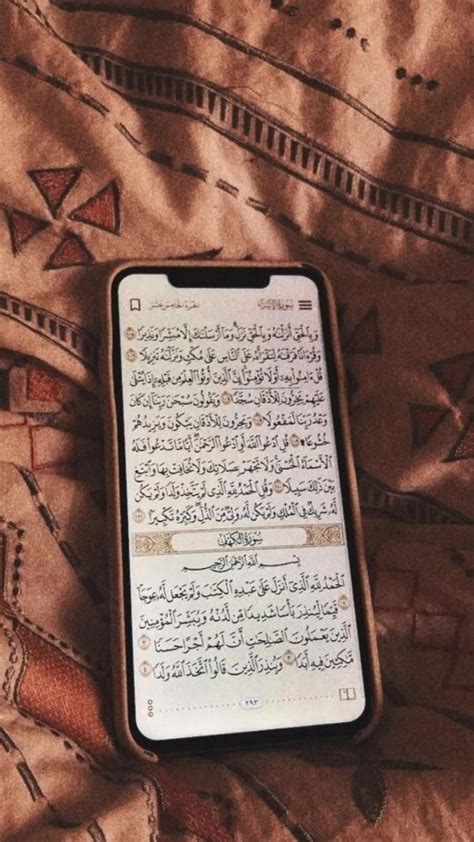 سُورَةُ الإِسْرَاءِ الجُزْءُ الخَامِسَ عَشَرَ
وَبِٱلْحَقِّ أَنزَلْنَٰهُ وَبِٱلْحَقِّ نَزَلَ وَمَآ أَرْسَلْنَٰكَ إِلَّا مُبَشِّرًا وَنَذِيرًا ١٠٥
وَقُرْءَانًا فَرَقْنَٰهُ لِتَقْرَأَهُۥ عَلَى ٱلنَّاسِ عَلَىٰ مُكْثٍ وَنَزَّلْنَٰهُ تَنزِيلًا ١٠٦
قُلْ ءَامِنُوا۟ بِهِۦٓ أَوْ لَا تُؤْمِنُوٓا۟ إِنَّ ٱلَّذِينَ أُوتُوا۟ ٱلْعِلْمَ مِن قَبْلِهِۦٓ إِذَا يُتْلَىٰ
عَلَيْهِمْ يَخِرُّونَ لِلْأَذْقَانِ سُجَّدًا ١٠٧ وَيَقُولُونَ سُبْحَٰنَ رَبِّنَآ إِن كَانَ
وَعْدُ رَبِّنَا لَمَفْعُولًا ١٠٨ وَيَخِرُّونَ لِلْأَذْقَانِ يَبْكُونَ وَيَزِيدُهُمْ
خُشُوعًا ١٠٩ قُلِ ٱدْعُوا۟ ٱللَّهَ أَوِ ٱدْعُوا۟ ٱلرَّحْمَٰنَ أَيًّا مَّا تَدْعُوا۟ فَلَهُ
ٱلْأَسْمَآءُ ٱلْحُسْنَىٰ وَلَا تَجْهَرْ بِصَلَاتِكَ وَلَا تُخَافِتْ بِهَا وَٱبْتَغِ
بَيْنَ ذَٰلِكَ سَبِيلًا ١١٠ وَقُلِ ٱلْحَمْدُ لِلَّهِ ٱلَّذِى لَمْ يَتَّخِذْ وَلَدًا وَلَمْ يَكُن
لَّهُۥ شَرِيكٌ فِى ٱلْمُلْكِ وَلَمْ يَكُن لَّهُۥ وَلِىٌّ مِّنَ ٱلذُّلِّ وَكَبِّرْهُ تَكْبِيرًا ١١١
سُورَةُ الكَهْفِ
بِسْمِ ٱللَّهِ ٱلرَّحْمَٰنِ ٱلرَّحِيمِ
ٱلْحَمْدُ لِلَّهِ ٱلَّذِىٓ أَنزَلَ عَلَىٰ عَبْدِهِ ٱلْكِتَٰبَ وَلَمْ يَجْعَل لَّهُۥ عِوَجَا ١
قَيِّمًا لِّيُنذِرَ بَأْسًا شَدِيدًا مِّن لَّدُنْهُ وَيُبَشِّرَ ٱلْمُؤْمِنِينَ
ٱلَّذِينَ يَعْمَلُونَ ٱلصَّٰلِحَٰتِ أَنَّ لَهُمْ أَجْرًا حَسَنًا ٢
مَّٰكِثِينَ فِيهِ أَبَدًا ٣ وَيُنذِرَ ٱلَّذِينَ قَالُوا۟ ٱتَّخَذَ ٱللَّهُ وَلَدًا ٤
٢٩٣